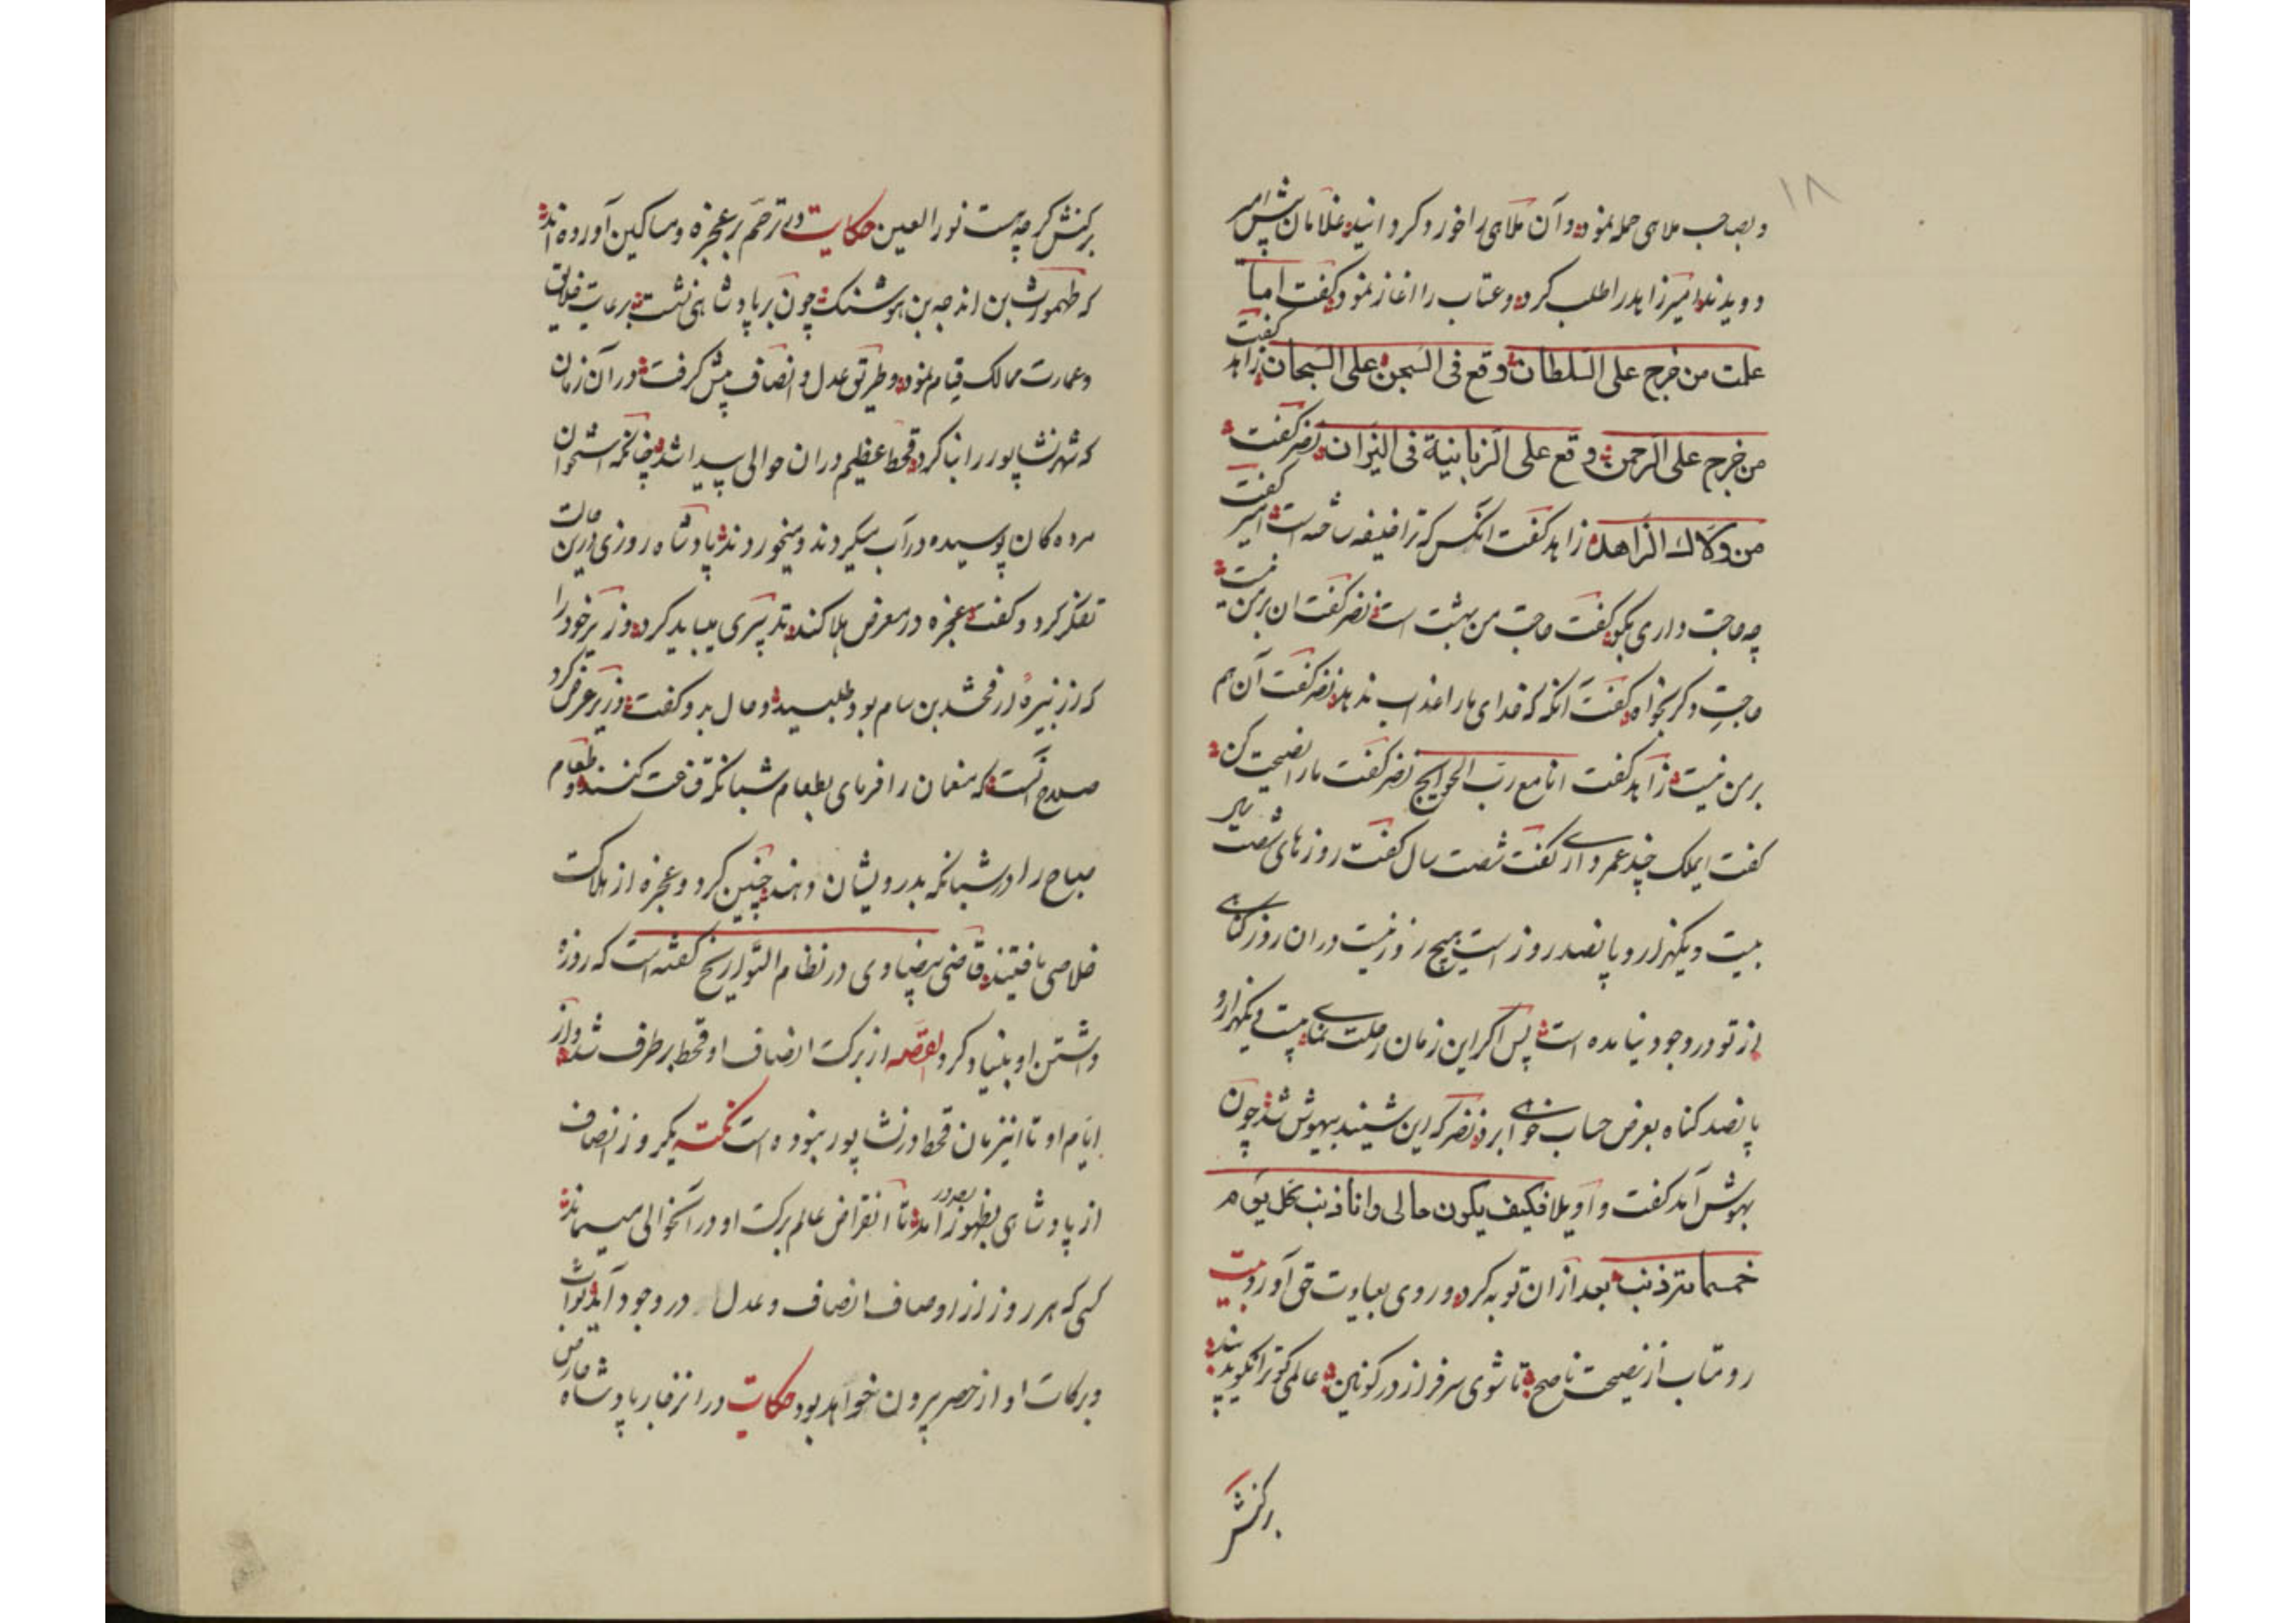 ۱۸
و بصاحب ملاهی حمله نمود و آن ملاهی را خورد کردانید غلامان پیش امیر
دویدند امیر زاهد را طلب کرد و عتاب را اغاز نمود و کفت اما
علمت من خرج علی السلطان وقع فی السجن علی السجان زاهد کفت
من خرج علی الرحمن وقع علی الزبانیة فی النیران نضر کفت
من ولاك الزاهد زاهد کفت انکس که ترا خلیفه ساخته است امیر کفت
چه حاجت داری بکو کفت حاجت من بهشت است نضر کفت ان بر من نیست
حاجت دکر بخواه کفت آنکه که خدای مارا عذاب ندهد نضر کفت آن هم
بر من نیست زاهد کفت انا مع رب الحوایج نضر کفت مارا نصیحت کن
کفت ایملک چند عمر داری کفت شصت سال کفت روزهای شصت سال
بیست و یکهزار و پانصد روز است هیچ روز نیست دران روز کناهی
از تو در وجود نیامده است پس اکر این زمان رحلت نمای بیست و یکهزار و
پانصد کناه بعرض حساب خواهی برد نضر که این شنید بیهوش شد چون
بهوش آمد کفت واویلا فکیف یکون حالی وانا ذنب بکل یوم
خمسمائة ذنب بعد ازان توبه کرد و روی بعبادت حق آورد بیت
رو متاب از نصیحت ناصح تا شوی سرفراز در کونین عالمی کو ترا نکوید پند
برکنش
برکنش کرچه هست نور العین حکایت در ترحم بر عجزه و مساکین آورده اند
که طهمورث بن انوجه بن هوشنک چون بر پادشاهی نشست برعایت خلایق
و عمارت ممالک قیام نمود و طریق عدل و انصاف پیش کرفت در آن زمان
که شهر نشاپور را بنا کرد قحط عظیم دران حوالی پیدا شد چنانکه استخوان
مرده کان پوسیده در آب میکردند و میخوردند پادشاه روزی درین حالت
تفکر کرد و کفت عجزه در معرض هلاکند تدبیری میباید کرد وزیر خود را
که از نبیرهٔ ارفخشد بن سام بود طلبید و حال بدو کفت وزیر عرض کرد
صلاح آنست که منعمان را فرمای بطعام شبانکه قناعت کنند و طعام
صباح را در شبانکه بدرویشان دهند چنین کرد و عجزه از هلاکت
خلاصی یافتند قاضی بیضاوی در نظام التواریخ کفته است که روزه
داشتن او بنیاد کرد القصه از برکت انصاف او قحط برطرف شد و از
ایام او تا اینزمان قحط در نشاپور نبوده است نکته یکروز انصاف
از پادشاهی بظهور آمد تا انقراض عالم برکت او در آنحوالی میماند
کسی که هر روز از اوصاف انصاف و عدل در وجود آید ثواب
و برکات او از حصر بیرون خواهد بود حکایت در انزفار پادشاه